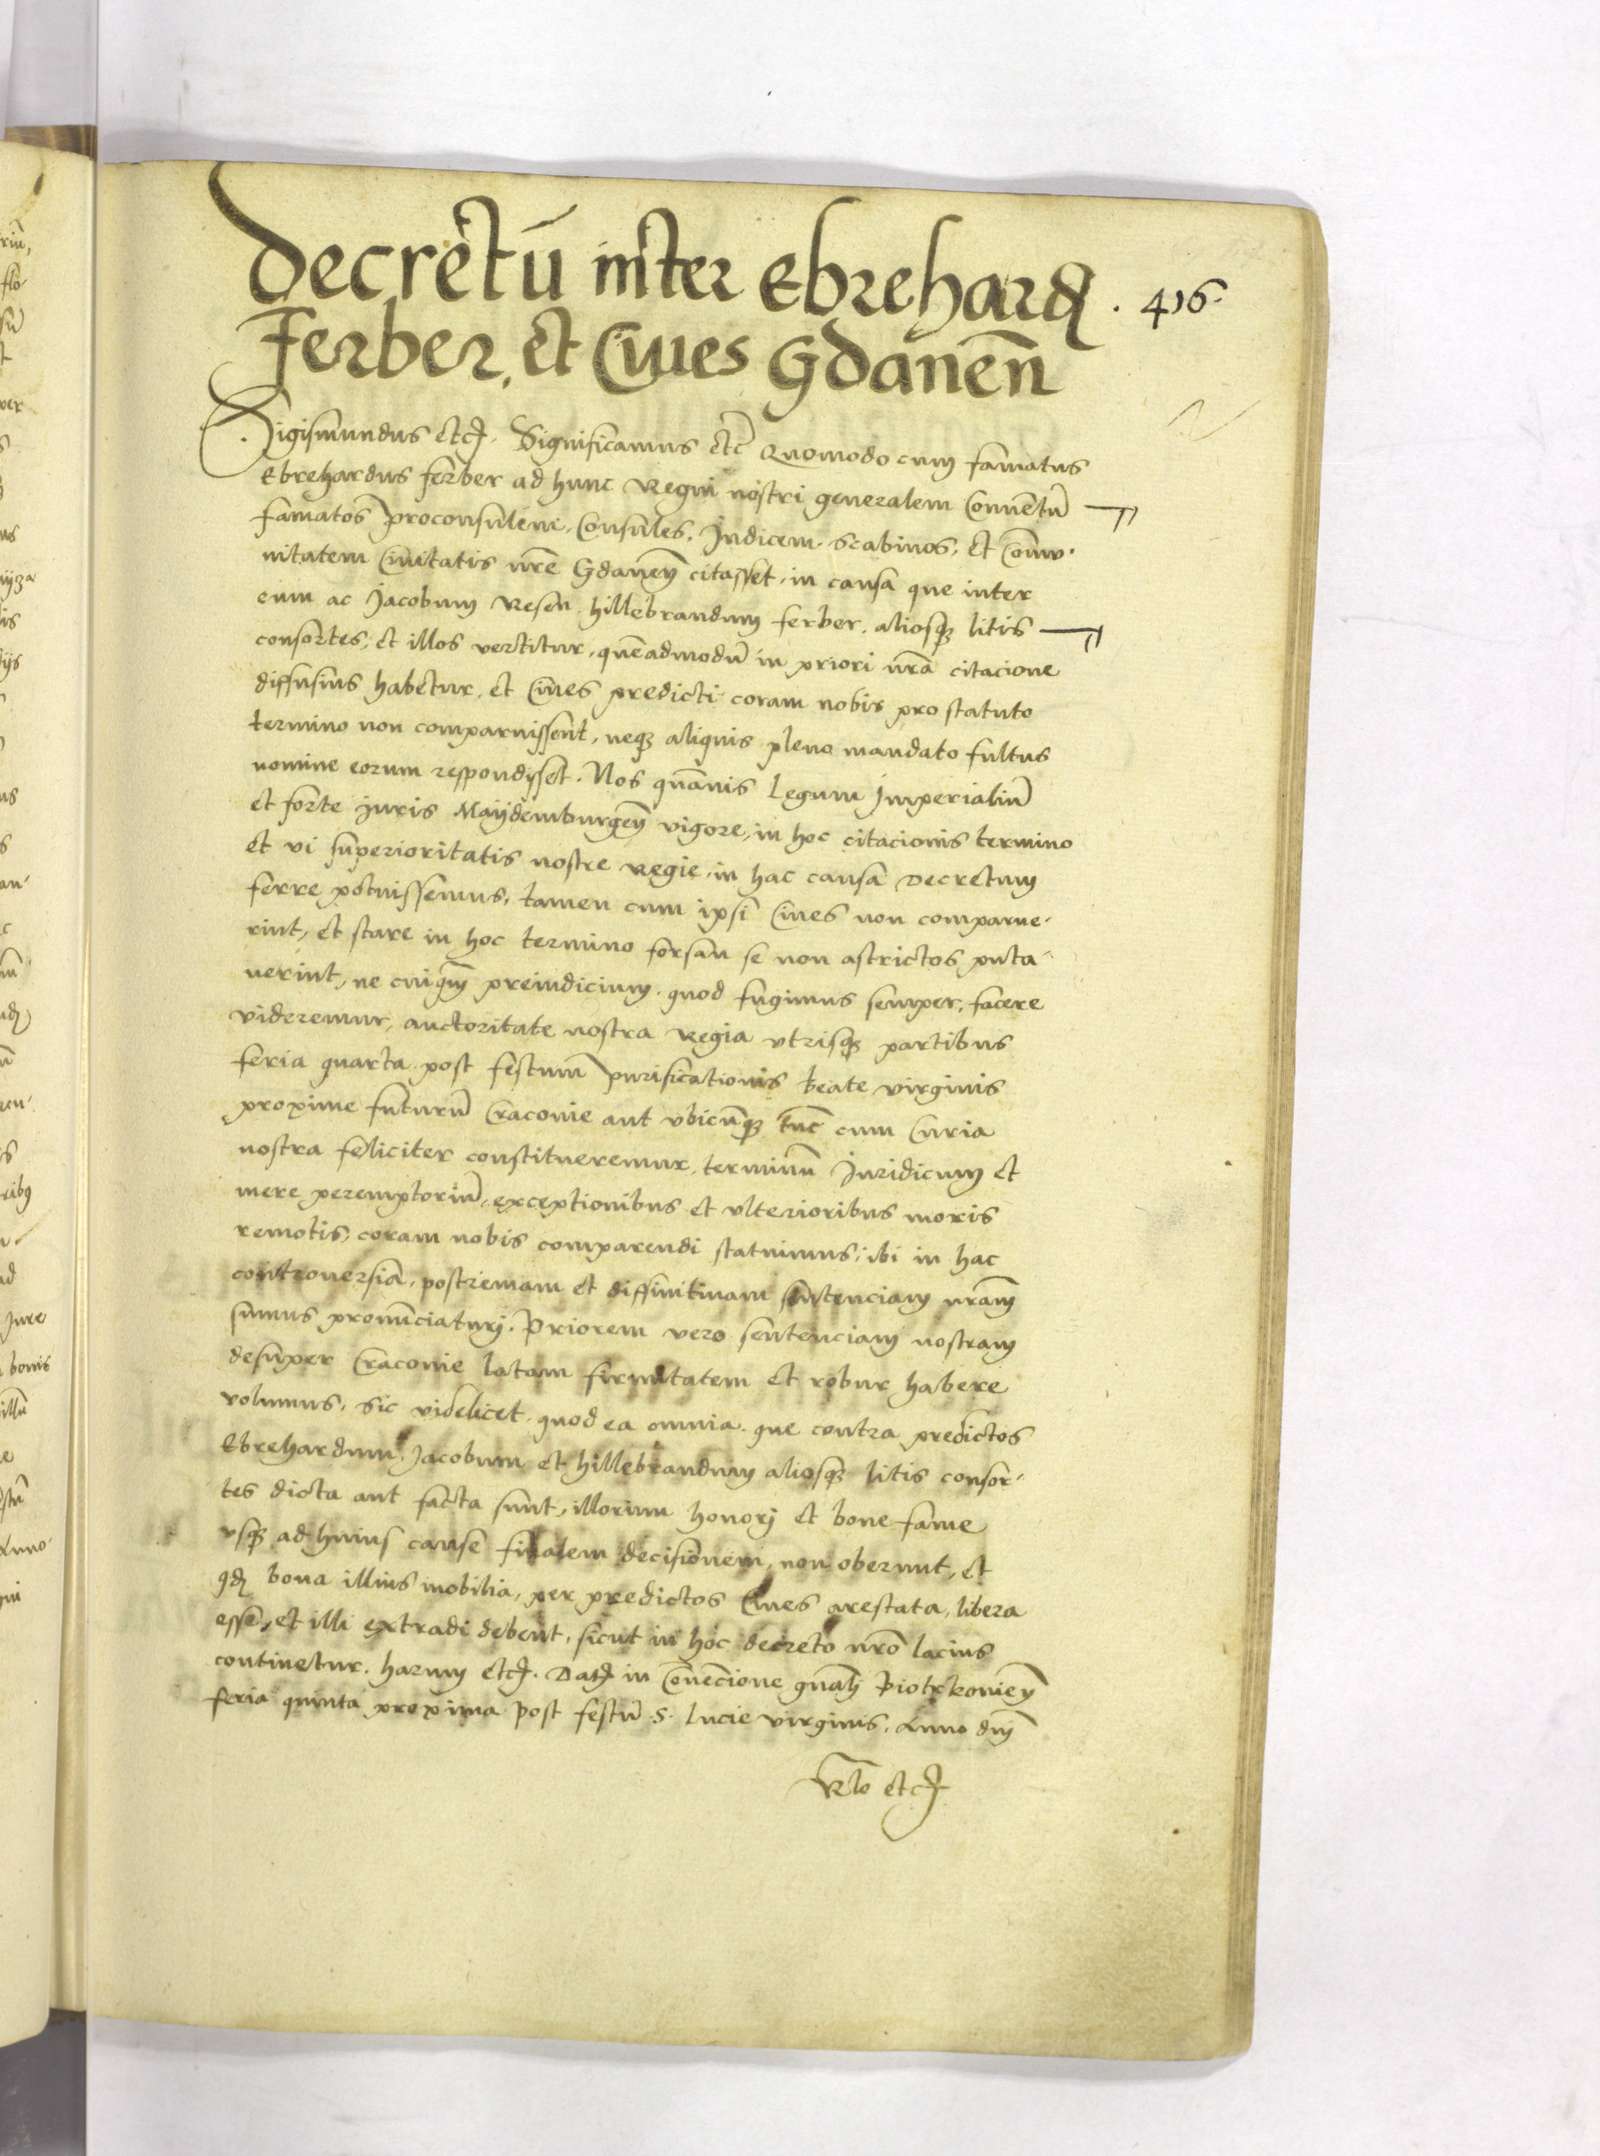 Decretū inter Ebrehardꝭ
. 416.
Ferber, et Ciues Gdanēn
Sigismundus etcꝭ. Significamus etc̄ Quomodo cum famatus
Ebrehardus ferber ad hunc Regni nostri generalem Conuentū
famatos proconsulem, Consules, Judicem, Scabinos, et Cōmu-
nitatem Ciuitatis nr̄e Gdaneñ citasset, in causa que inter
eum ac Jacobum Resen, hillebrandum ferber, aliosqꝫ litis
consortes, et illos vertitur, quēadmodū in priori nr̄a citacione
diffusius habetur, et Ciues predicti coram nobis pro statuto
termino non comparuissent, neqꝫ aliquis pleno mandato fultus
nomine eorum respondisset. Nos quāuis Legum Imperialiū
et forte Juris Maydemburgeñ vigore, in hoc citacionis termino
et vi superioritatis nostre Regie, in hac causa Decretum
ferre potuissemus, tamen cum ipsi Ciues non comparue-
rint, et stare in hoc termino forsan se non astrictos puta-
uerint, ne cuiqm̄ preiudicium, quod fugimus semper, facere
videremur, auctoritate nostra Regia vtrisqꝫ partibus
feria quarta post festum purificationis beate virginis
proxime futurū Cracouie aut vbicūqꝫ tūc cum Curia
nostra feliciter constitueremur, terminū Juridicum et
mere peremptoriū, exceptionibus et vlterioribus moris
remotis, coram nobis comparendi statuimus, ibi in hac
controuersia, postremam et diffinitiuam sentenciam nr̄am
sumus pronunciaturi. Priorem vero sentenciam nostram
desuper Cracouie latam firmitatem et robur habere
volumus, sic videlicet quod ea omnia que contra predictos
Ebrehardum, Jacobum et hillebrandum aliosqꝫ litis consor-
tes dicta aut facta sunt, illorum honori et bone fame
vsqꝫ ad huius cause finalem decisionem, non oberunt, et
qđ bona illius mobilia, per predictos Ciues arestata, libera
esse, et illi extradi debent, sicut in hoc decreto nr̄o lacius
continetur. harum etcꝭ. Datꝭ in Cōuēcione gn̄ali Piotrkouieñ
feria quinta proxima post festū S. Lucie virginis, Anno dn̄i
Rlō etcꝭ